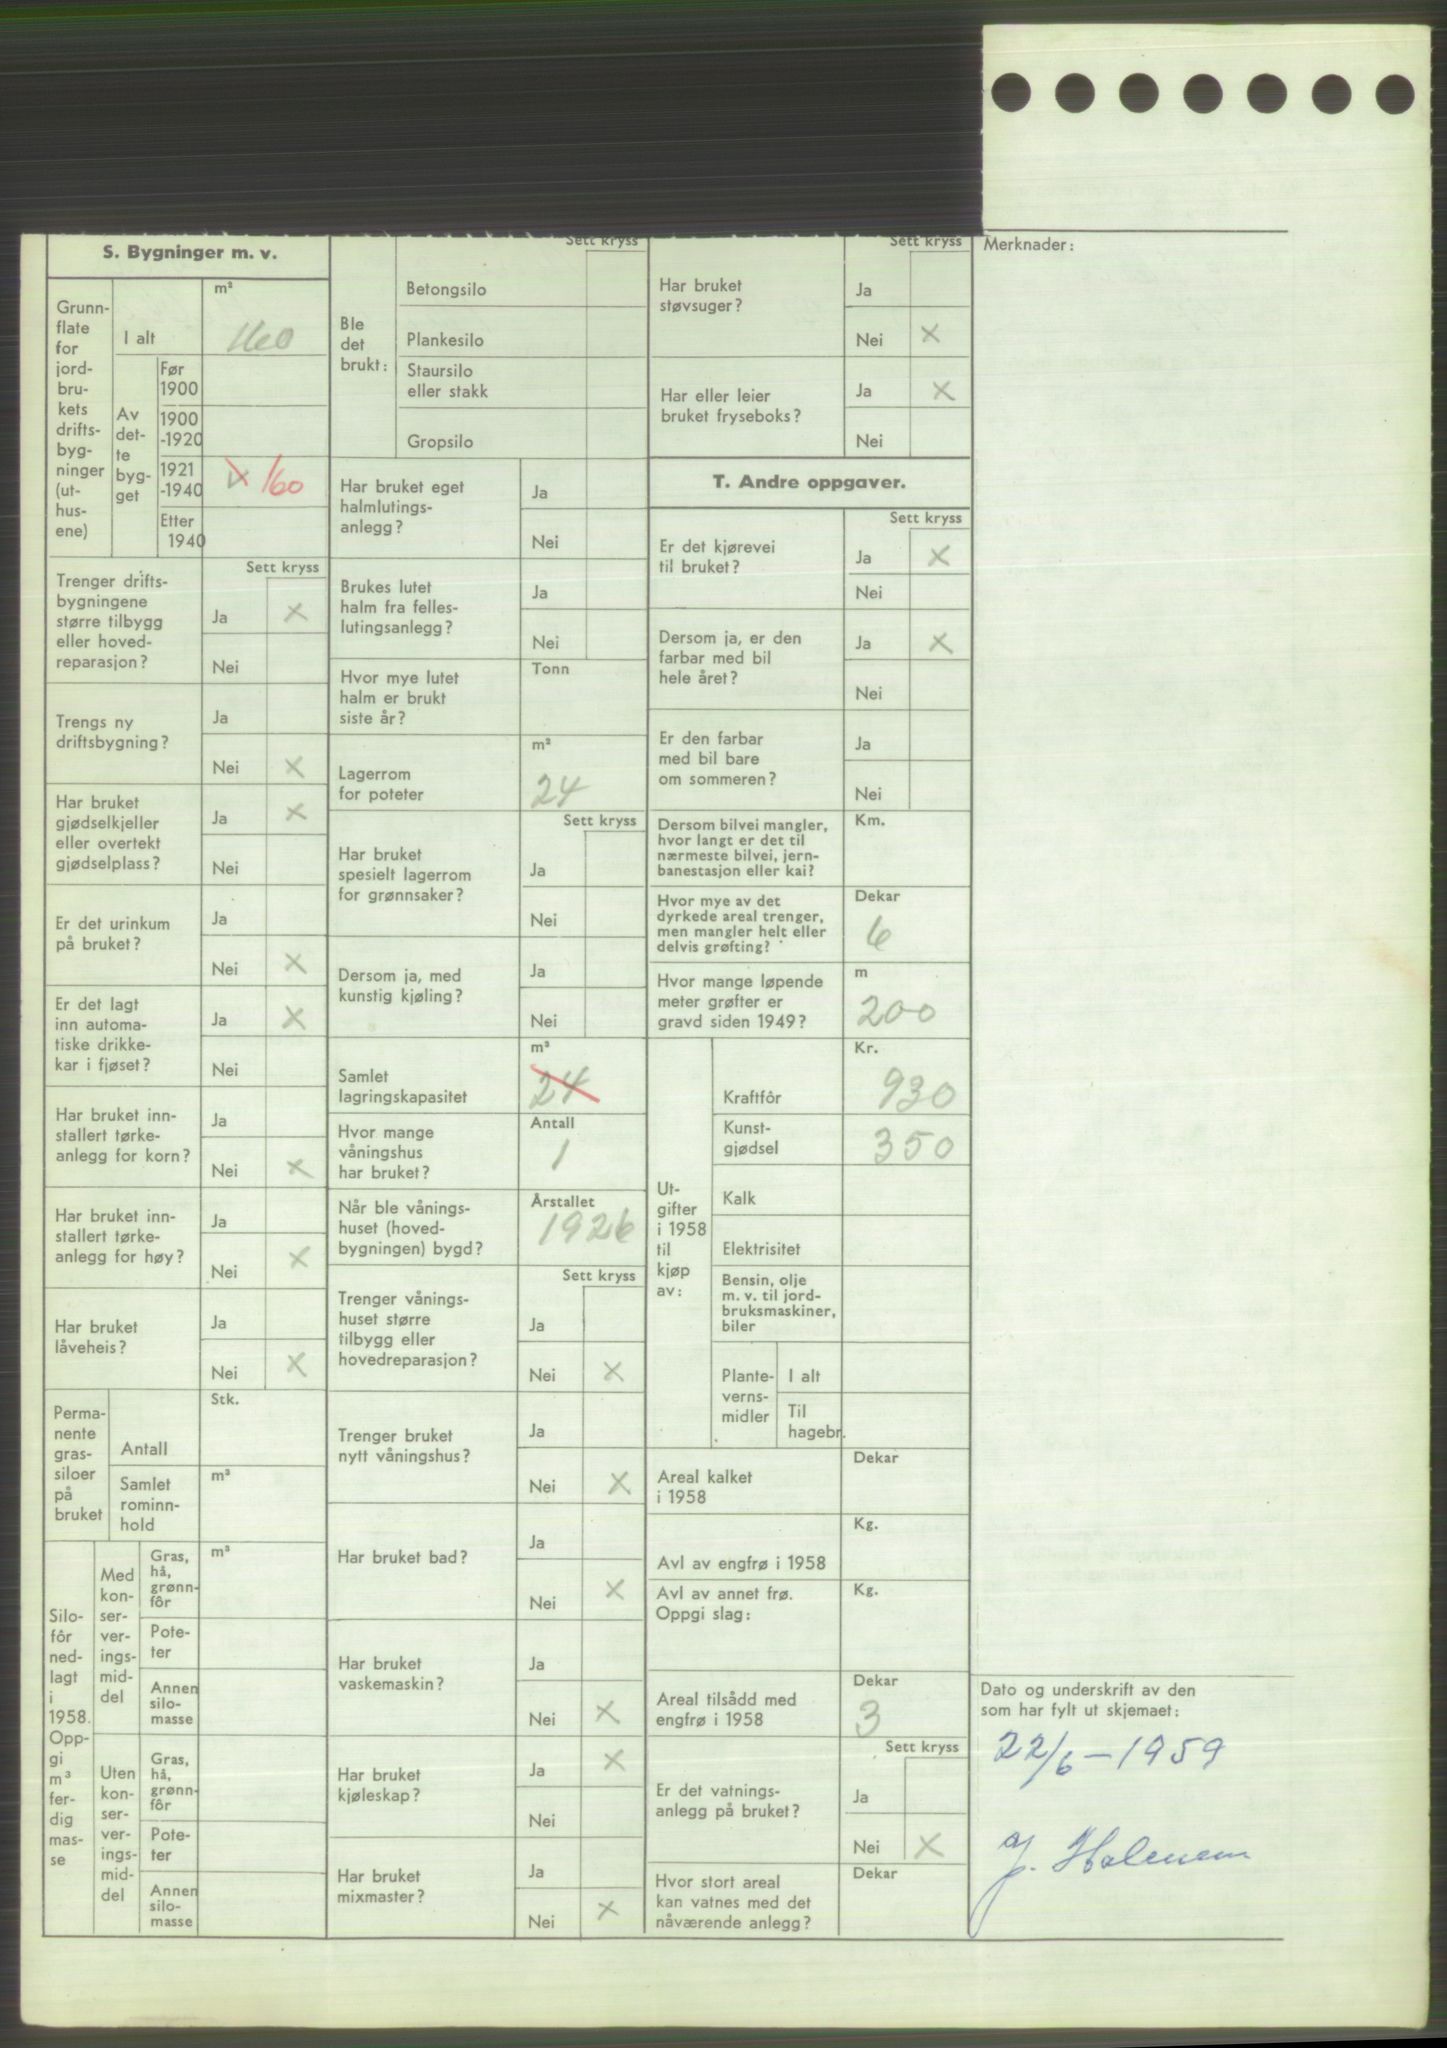 S. Bygninger m. v.
Grunn-
flate
for
jord-
bru-
kets
drifts-
byg-
ninger
(ut-
hus-
ene)
m²
I alt
160
Av
det-
te
byg-
get
Før
1900
1900
-1920
1921
-1940
160
Etter
1940
Sett kryss
Trenger drifts-
bygningene
større tilbygg
eller hoved-
reparasjon?
Ja
X
Nei
Trengs ny
driftsbygning?
Ja
Nei
X
Har bruket
gjødselkjeller
eller overtekt
gjødselplass?
Ja
X
Nei
Er det urinkum
på bruket?
Ja
Nei
X
Er det lagt
inn automa-
tiske drikke-
kar i fjøset?
Ja
X
Nei
Har bruket inn-
stallert tørke-
anlegg for korn?
Ja
Nei
X
Har bruket inn-
stallert tørke-
anlegg for høy?
Ja
Nei
X
Har bruket
låveheis?
Ja
Nei
X
Perma-
nente
gras-
siloer
på
bruket
Stk.
Antall
m³
Samlet
rominn-
hold
Silo-
fôr
ned-
lagt
i
1958.
Opp-
gi
m³
fer-
dig
mas-
se
Med
kon-
ser-
ver-
ings-
mid-
del
m³
Gras,
hå,
grønn-
fôr
Pote-
ter
Annen
silo-
masse
Uten
kon-
ser-
ver-
ings-
mid-
del
Gras,
hå,
grønn-
fôr
Pote-
ter
Annen
silo-
masse
Ble
det
brukt:
Sett kryss
Betongsilo
Plankesilo
Staursilo
eller stakk
Gropsilo
Har bruket eget
halmlutings-
anlegg?
Ja
Nei
Brukes lutet
halm fra felles-
lutingsanlegg?
Ja
Nei
Hvor mye lutet
halm er brukt
siste år?
Tonn
Lagerrom
for poteter
m²
24
Sett kryss
Har bruket
spesielt lagerrom
for grønnsaker?
Ja
Nei
Dersom ja, med
kunstig kjøling?
Ja
Nei
Samlet
lagringskapasitet
m³
24
Hvor mange
våningshus
har bruket?
Antall
1
Når ble vånings-
huset (hoved-
bygningen) bygd?
Årstallet
1926
Sett kryss
Trenger vånings-
huset større
tilbygg eller
hovedreparasjon?
Ja
Nei
X
Trenger bruket
nytt våningshus?
Ja
Nei
X
Har bruket bad?
Ja
Nei
X
Har bruket
vaskemaskin?
Ja
Nei
X
Har bruket
kjøleskap?
Ja
X
Nei
Har bruket
mixmaster?
Ja
Nei
X
Sett kryss
Har bruket
støvsuger?
Ja
Nei
X
Har eller leier
bruket fryseboks?
Ja
X
Nei
T. Andre oppgaver.
Sett kryss
Er det kjørevei
til bruket?
Ja
X
Nei
Dersom ja, er den
farbar med bil
hele året?
Ja
X
Nei
Er den farbar
med bil bare
om sommeren?
Ja
Nei
Dersom bilvei mangler,
hvor langt er det til
nærmeste bilvei, jern-
banestasjon eller kai?
Km.
Hvor mye av det
dyrkede areal trenger,
men mangler helt eller
delvis grøfting?
Dekar
6
Hvor mange løpende
meter grøfter er
gravd siden 1949?
m
200
Ut-
gifter
i 1958
til
kjøp
av:
Kr.
Kraftfôr
930
Kunst-
gjødsel
350
Kalk
Elektrisitet
Bensin, olje
m. v. til jord-
bruksmaskiner,
biler
Plante-
verns-
midler
I alt
Til
hagebr.
Areal kalket
i 1958
Dekar
Avl av engfrø i 1958
Kg.
Avl av annet frø.
Oppgi slag:
Kg.
Areal tilsådd med
engfrø i 1958
Dekar
3
Sett kryss
Er det vatnings-
anlegg på bruket?
Ja
Nei
X
Hvor stort areal
kan vatnes med det
nåværende anlegg?
Dekar
Merknader:
Dato og underskrift av den
som har fylt ut skjemaet:
22/6-1959
J.